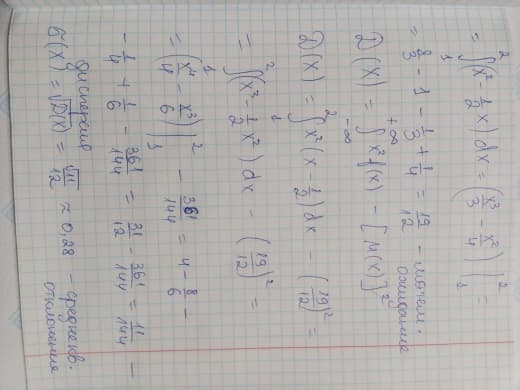 = ∫₁² (x² - 1/2 x) dx = (x³/3 - x²/4) |₁² =
= 8/3 - 1 - 1/3 + 1/4 = 19/12 - матем. ожидание
D(X) = ∫₋∞⁺∞ x² f(x) - [M(x)]²
D(X) = ∫₁² x² (x - 1/2) dx - (19/12)² =
= ∫₁² (x³ - 1/2 x²) dx - (19/12)² =
= (x⁴/4 - x³/6) |₁² - 361/144 = 4 - 8/6 -
- 1/4 + 1/6 - 361/144 = 31/12 - 361/144 = 11/144 -
дисперсия
σ(X) = √D(X) = √11/12 ≈ 0,28 - среднекв. отклонение